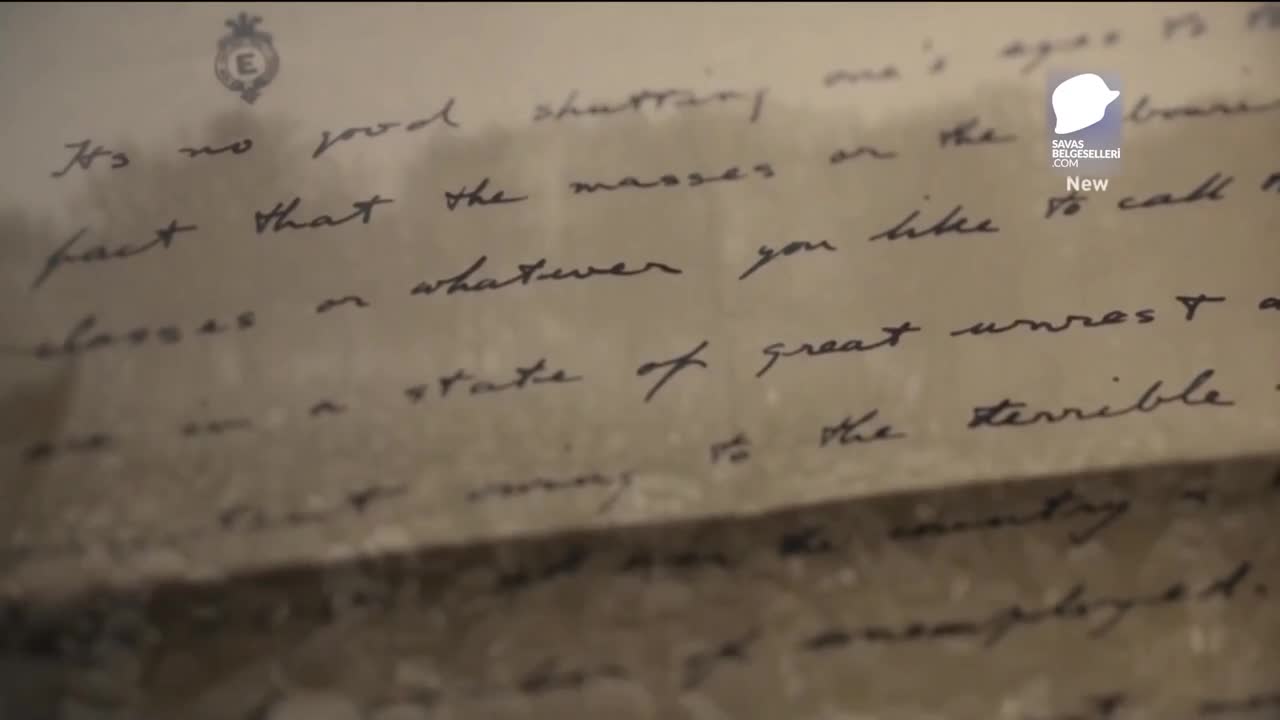 E
Its no good shutting one's eyes to
fact that the masses or the
classes or whatever you like to call
are in a state of great unrest
to the terrible
the country &
unemployed.
SAVAS
BELGESELLERİ
.COM
New